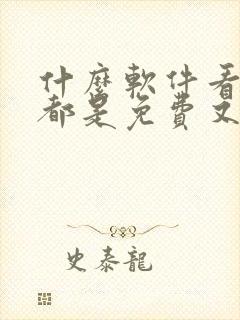 什麼軟件看
都是免費又
史泰龍